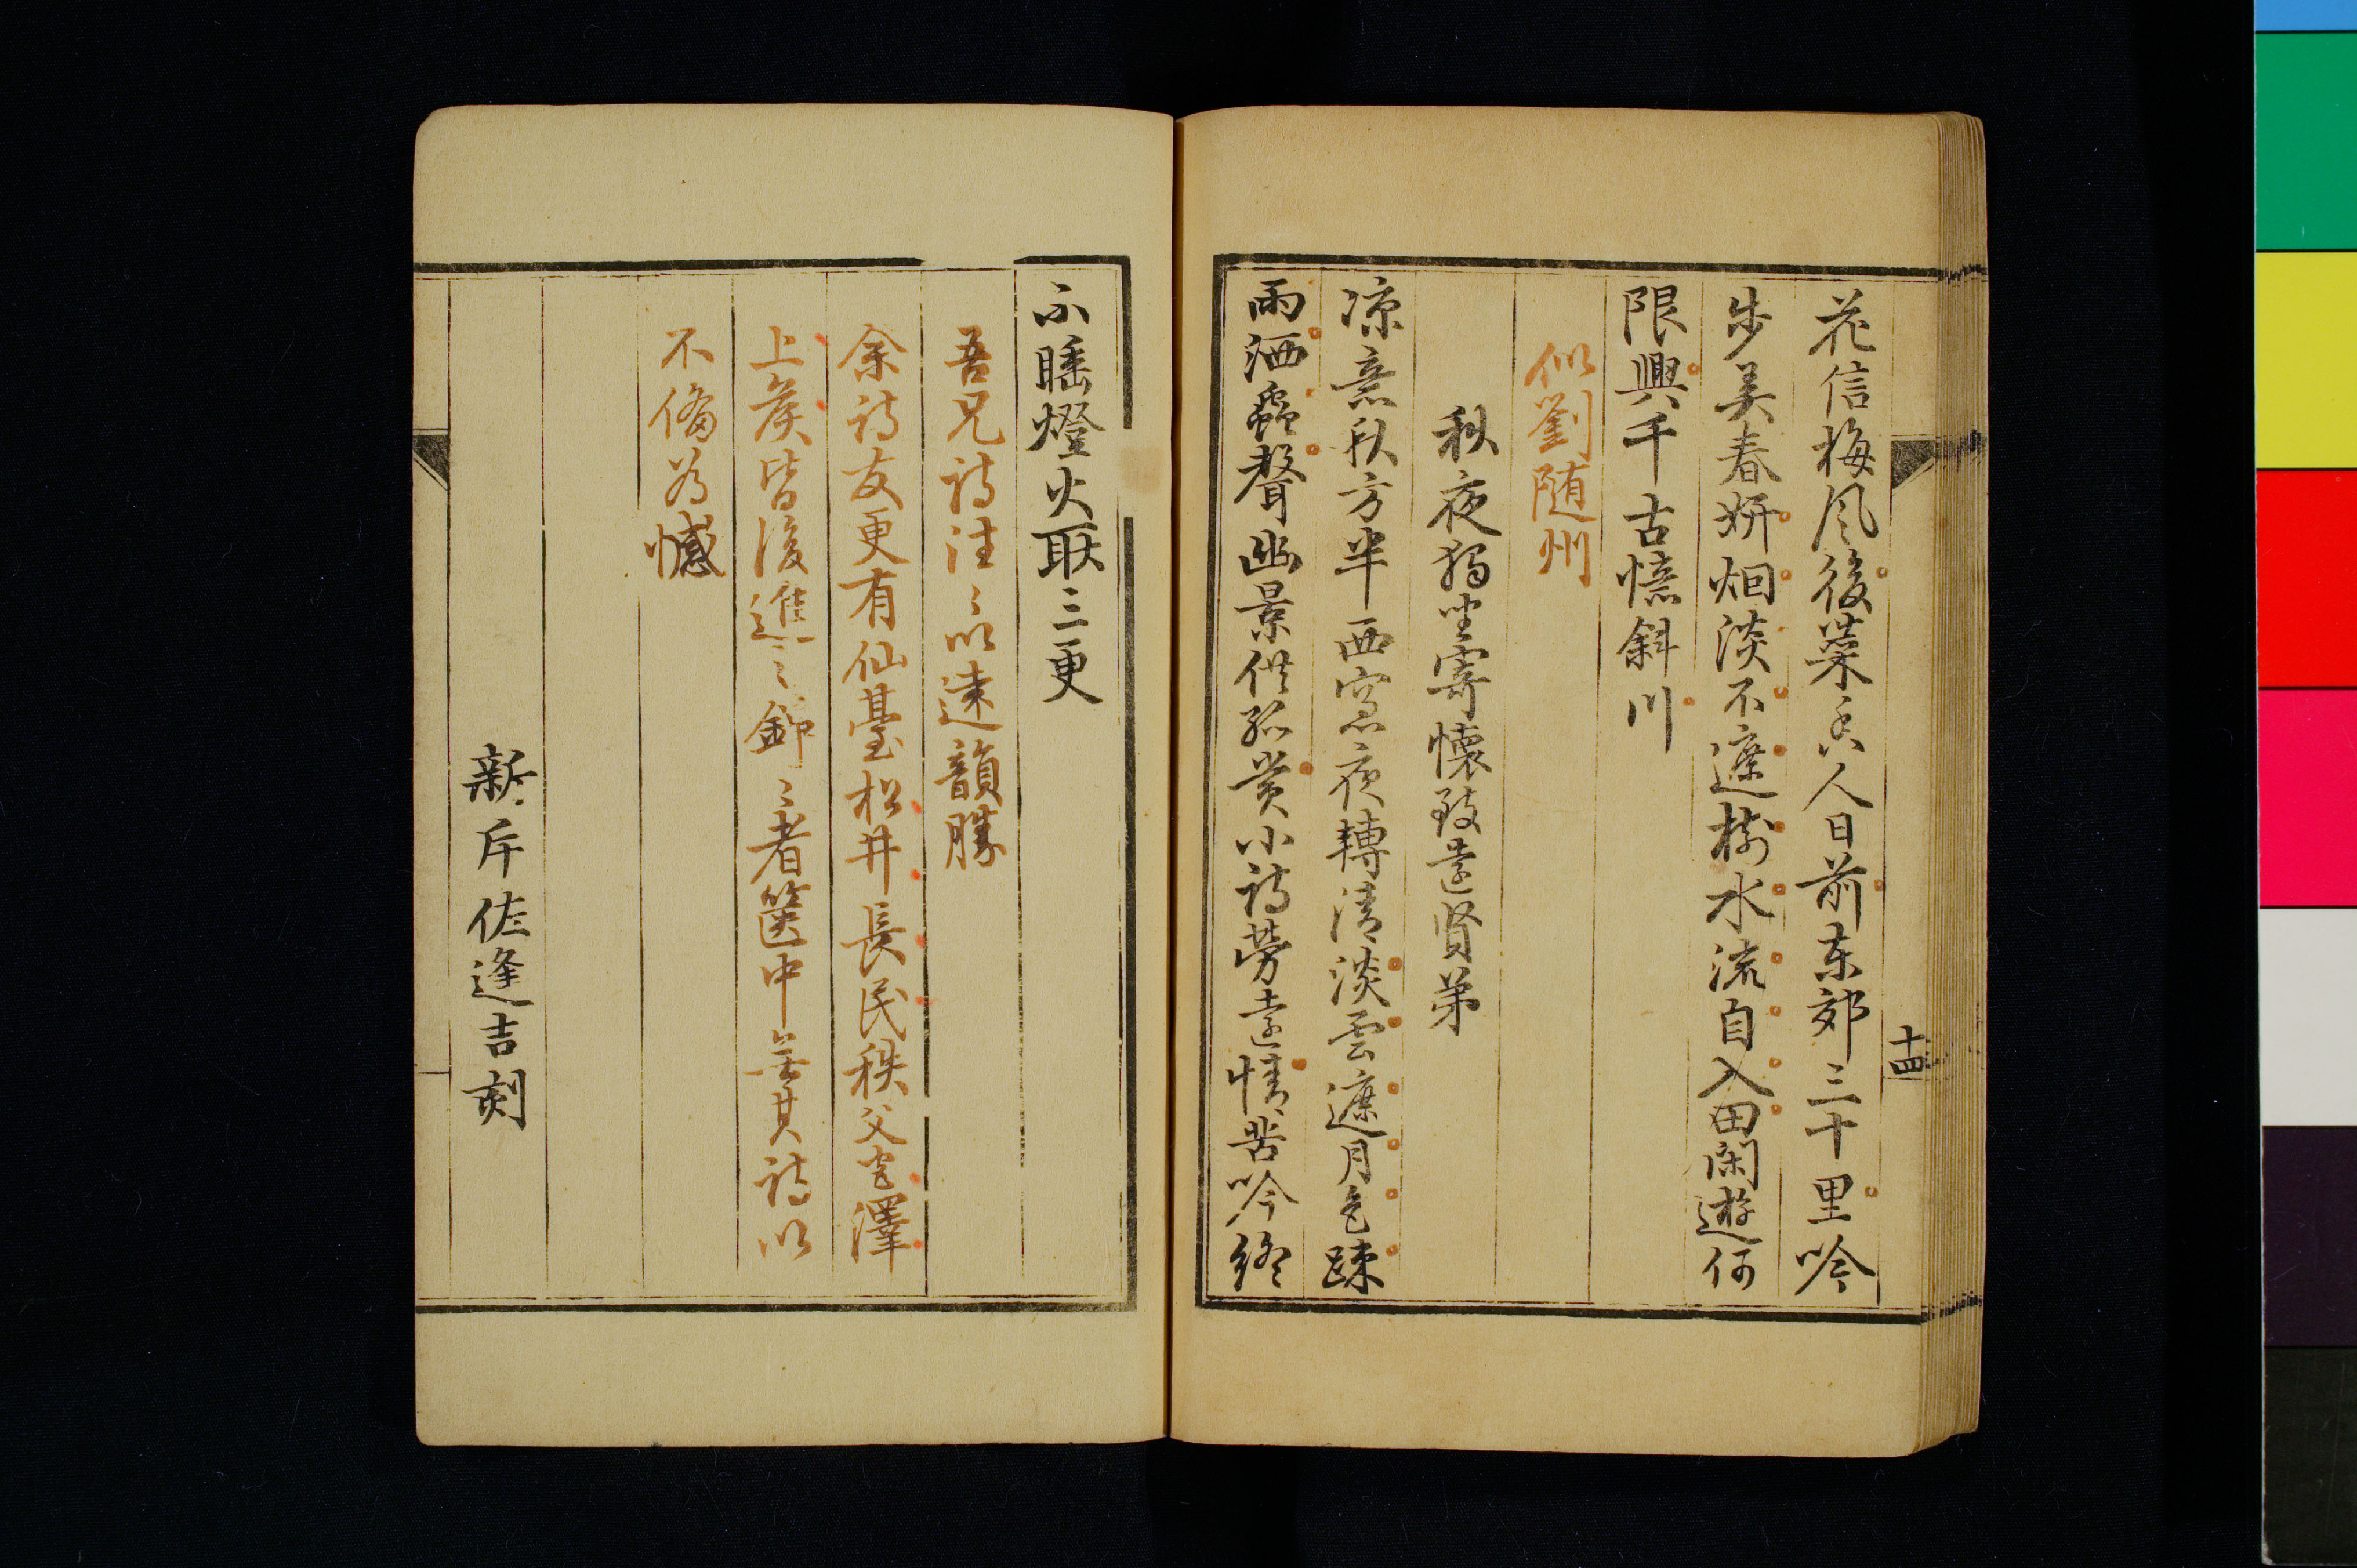 花信梅風後菜香人日前東郊三十里吟
步美春妍烟淡不遮樹水流自入田閑遊何
限興千古憶斜川
似劉随州
秋夜獨坐寄懷致遠賢弟
凉意秋方半西窓夜轉清淡雲遮月色疎
雨洒蟲聲幽景供孤賞小詩勞遠情苦吟終
十四
不睡燈火耿三更
吾兄詩往々以遠韻勝
余詩友更有仙臺松井長民秩父宮澤
上侯皆後進之錚々者篋中無其詩以
不備為憾
新斥佐逢吉刻